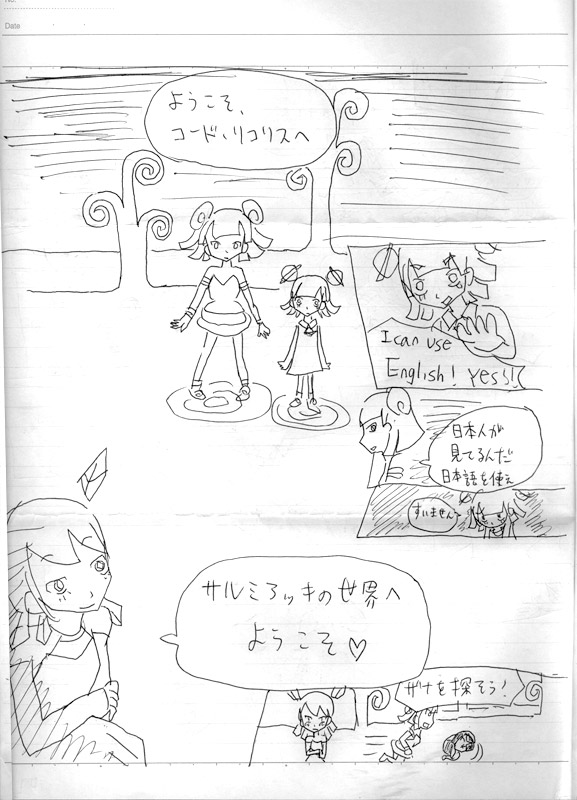 No.
Date
ようこそ、
コード・リコリスへ
I can use
English! Yes!!
日本人が
見てるんだ
日本語を使え
すいません
サルミアッキの世界へ
ようこそ♡
ザナを探そう!